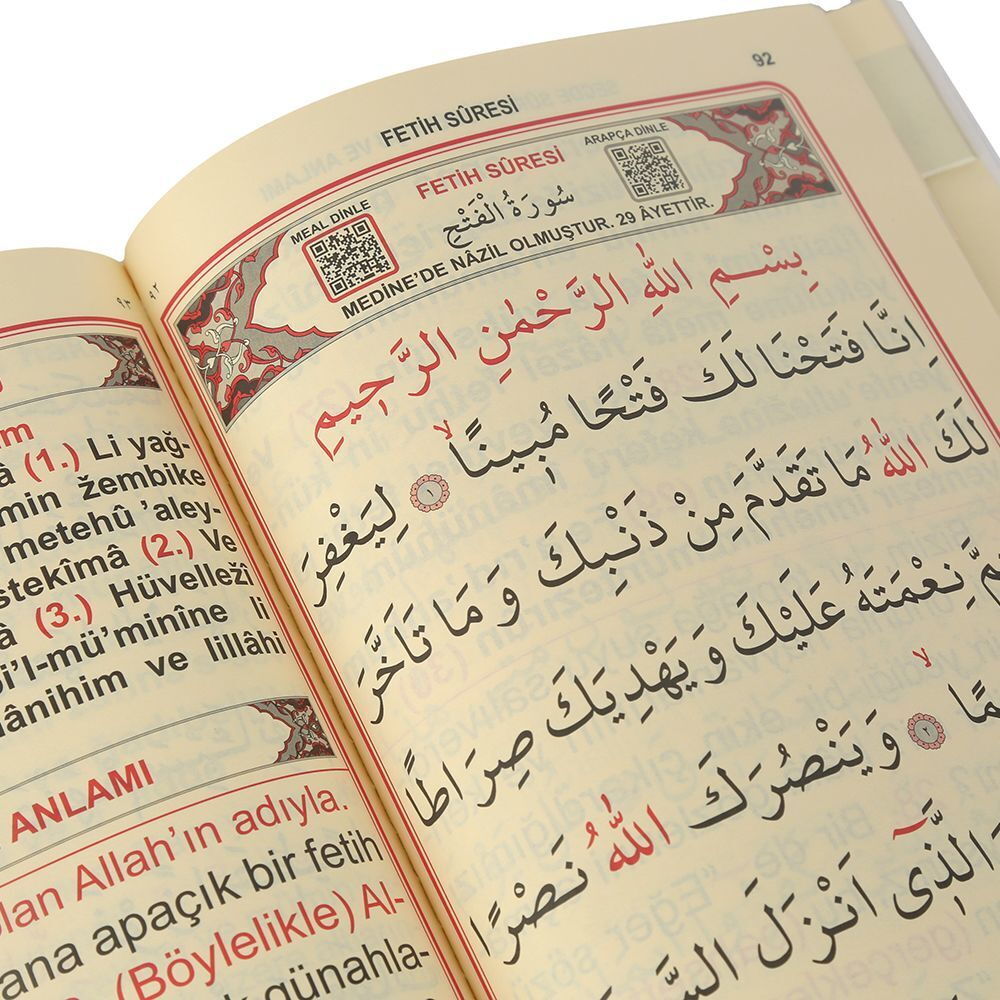 92
FETİH SÛRESİ
MEAL DİNLE
FETİH SÛRESİ
ARAPÇA DİNLE
سُورَةُ الْفَتْحِ
MEDİNE'DE NÂZİL OLMUŞTUR. 29 ÂYETTİR.
بِسْمِ اللّٰهِ الرَّحْمٰنِ الرَّحِيمِ
اِنَّا فَتَحْنَا لَكَ فَتْحًا مُبِينًا ۙ ١ لِيَغْفِرَ
لَكَ اللّٰهُ مَا تَقَدَّمَ مِنْ ذَنْبِكَ وَ مَا تَاَخَّرَ
نِعْمَتَهُ عَلَيْكَ وَ يَهْدِيَكَ صِرَاطًا
ۙ ٢ وَ يَنْصُرَكَ اللّٰهُ نَصْرًا
اَلَّذٖٓى اَنْزَلَ
٩٢
٩٣
(1.) Li yağ-
min žembike
metehû 'aley-
stekîmâ (2.) Ve
(3.) Hüvelležî
bi'l-mü'minîne li
mânihim ve lillâhi
ANLAMI
olan Allah'ın adıyla.
sana apaçık bir fetih
(Böylelikle) Al-
günahla-